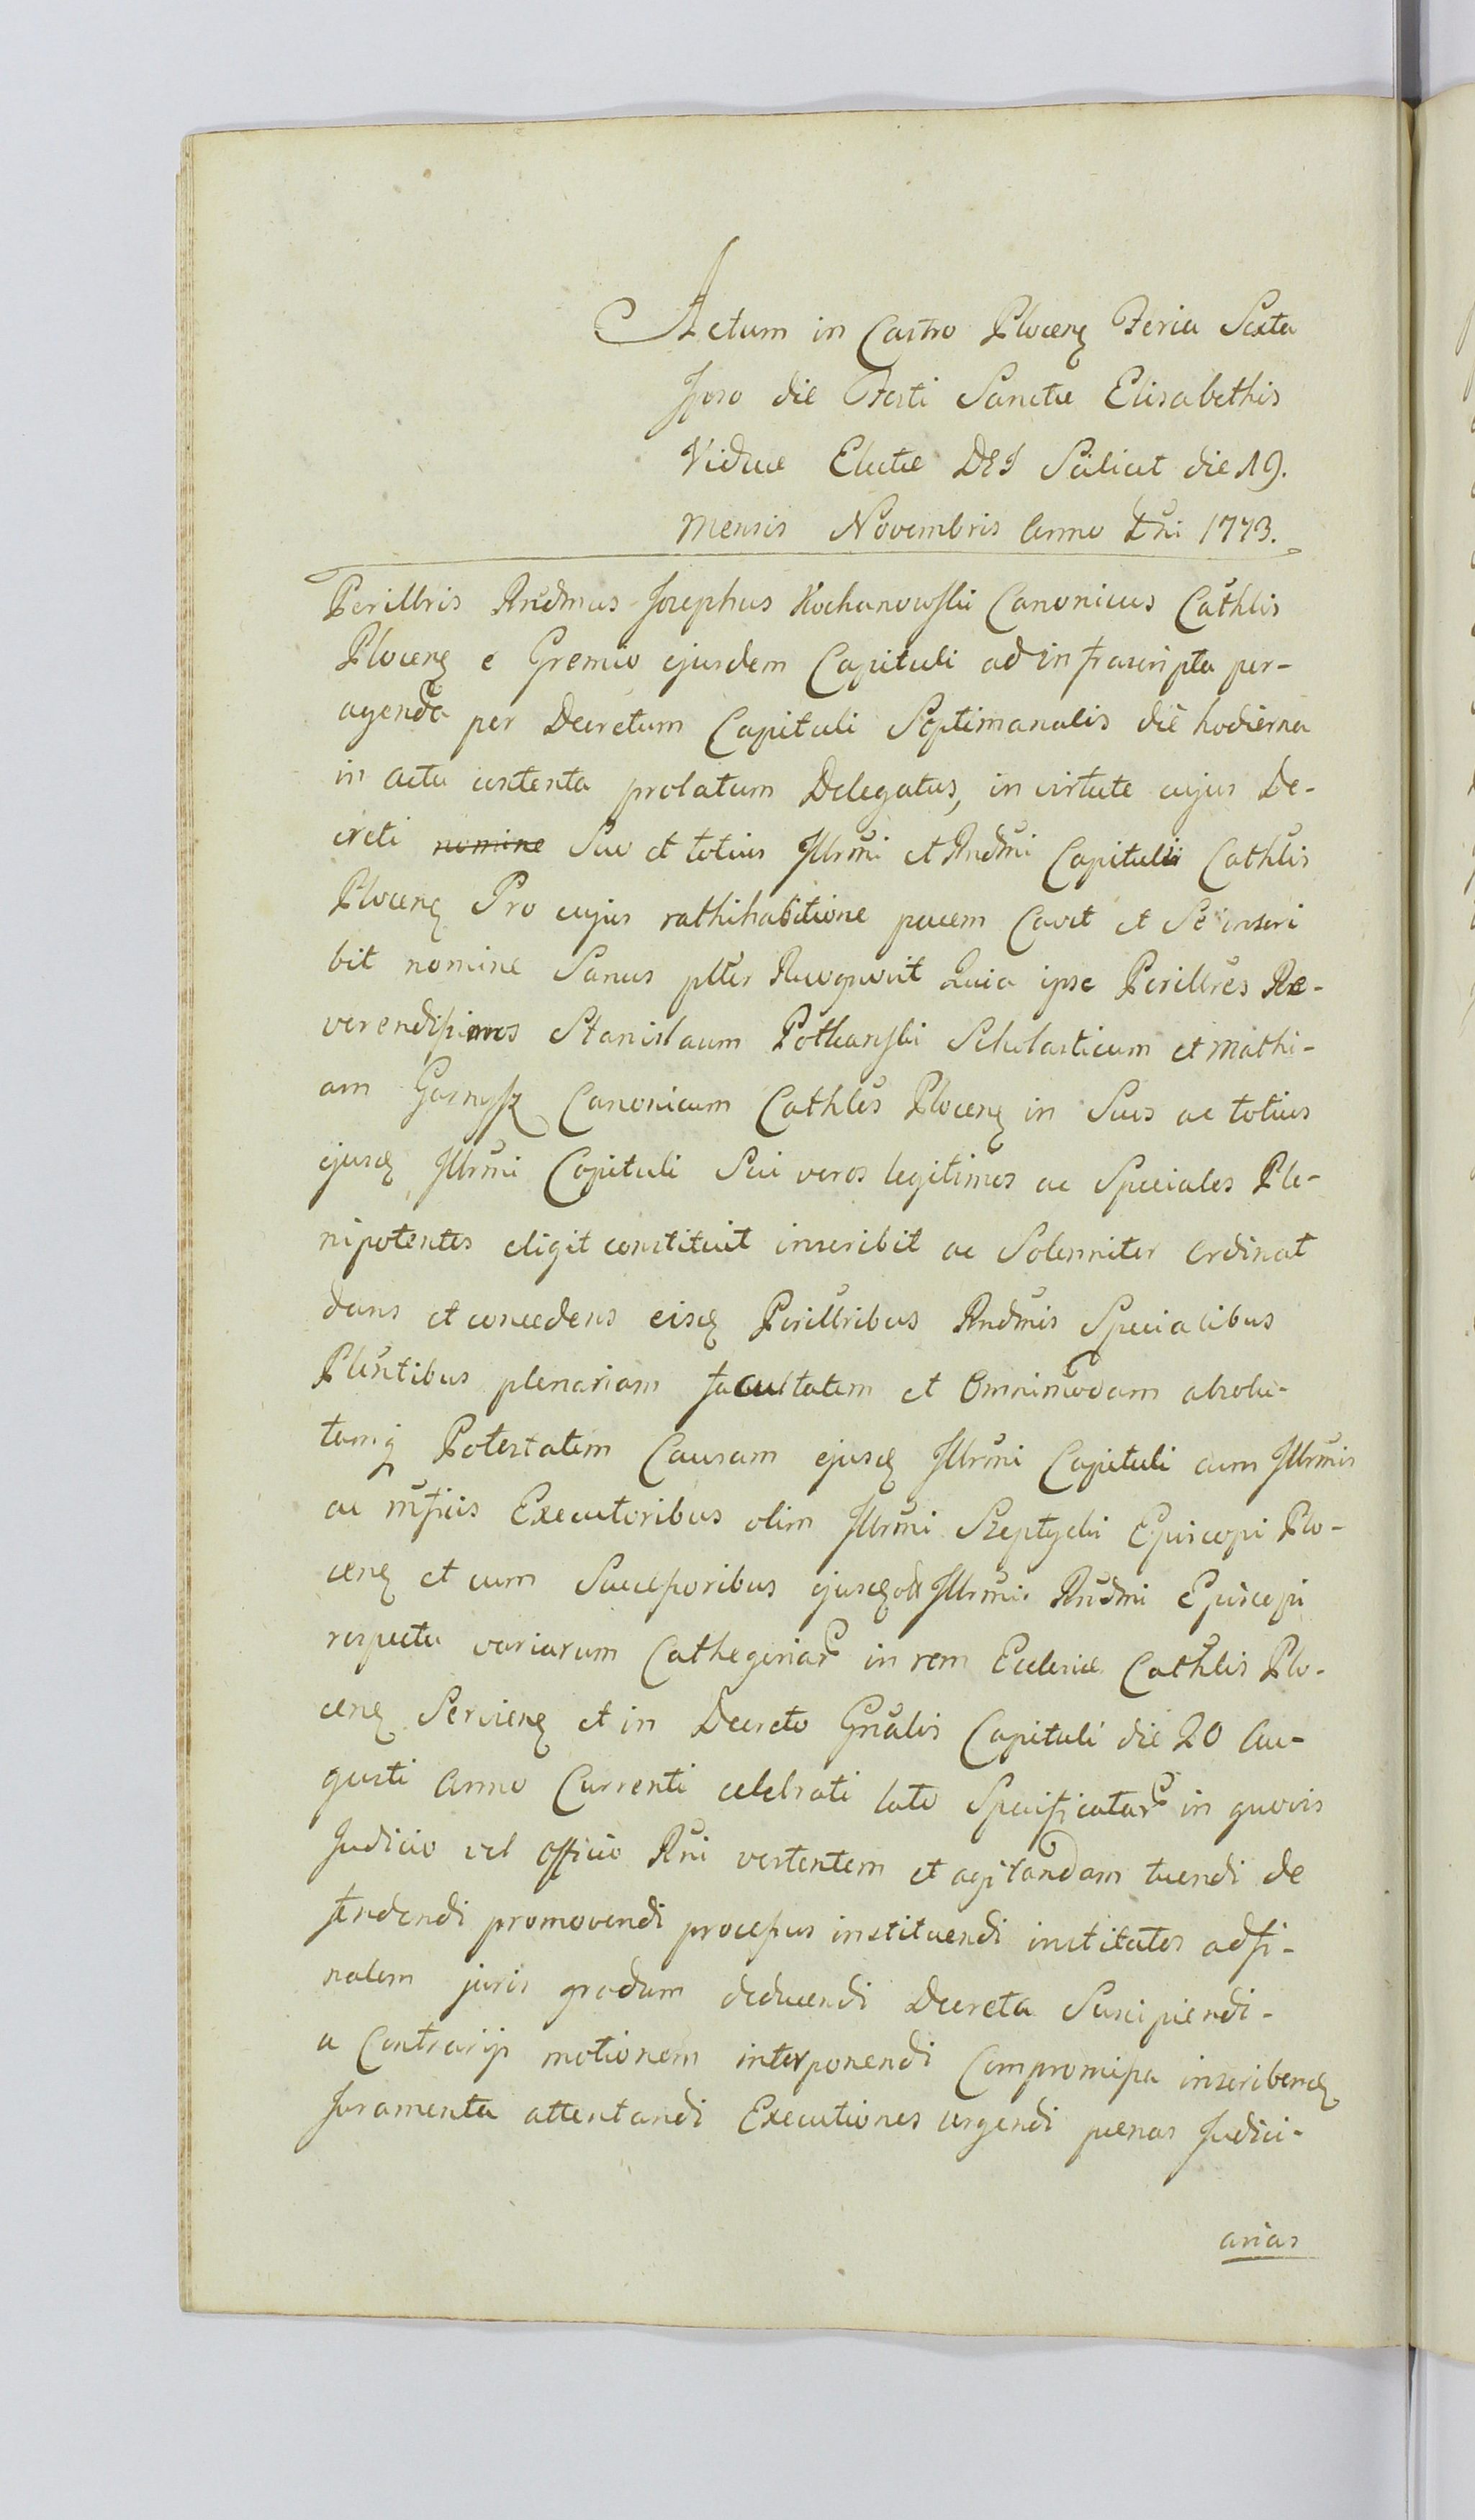 Actum in Castro Plocenȝ Feria Sexta
Ipso die Festi Sanctæ Elisabethis
Viduæ Electæ DEI Scilicet die 19.
Mensis Novembris Anno Dni 1773.
Perillris Rndmus Josephus Kochanowski Canonicus Cathlis
Plocenȝ e Gremio ejusdem Capituli ad infrascripta per-
agenda per Decretum Capituli Septimanalis die hodierna
in actu contenta prolatum Delegatus, in virtute cujus De-
creti nomine Suo et totius Illrmi et Rndmi Capituli Cathlis
Plocenȝ Pro cujus rathihabitione pacem Cavet et Se inscri
bit nomine Sanus plter Recognovit Quia ipse Perillres Re-
verendissimos Stanislaum Potkanski Scholasticum et Mathi-
am Garnysz Canonicum Cathles Plocenȝ in Suos ac totius
ejusdȝ Illrmi Capituli Sui veros legitimos ac Speciales Ple-
nipotentes eligit constituit inscribit ac Solenniter ordinat
dans et concedens eisdȝ Perillribus Rndmis Specialibus
Plentibus plenariam facultatem et Omnimodam absolu-
tamqȝ Potestatem Causam ejusdȝ Illrmi Capituli cum Illrmis
ac mficis Executoribus olim Illrmi Szeptycki Episcopi Plo-
cenȝ et cum Successoribus ejusdȝ Illrmi Rndmi Episcopi
respectu variarum Cathegoriar in rem Ecclesiæ Cathlis Plo-
cenȝ Servienȝ et in Decreto Gnalis Capituli die 20 Au-
gusti Anno Currenti celebrati lato Specificatar in quovis
Judicio vel Officio Rni vertentem et agitandam tuendi de
fendendi promovendi processus instituendi institutos ad fi-
nalem juris gradum deducendi Decreta Suscipiendi-
a Contrariis motionem interponendi Compromissa inscribendȝ
Juramenta attentandi Executiones urgendi pænas Judici-
arias